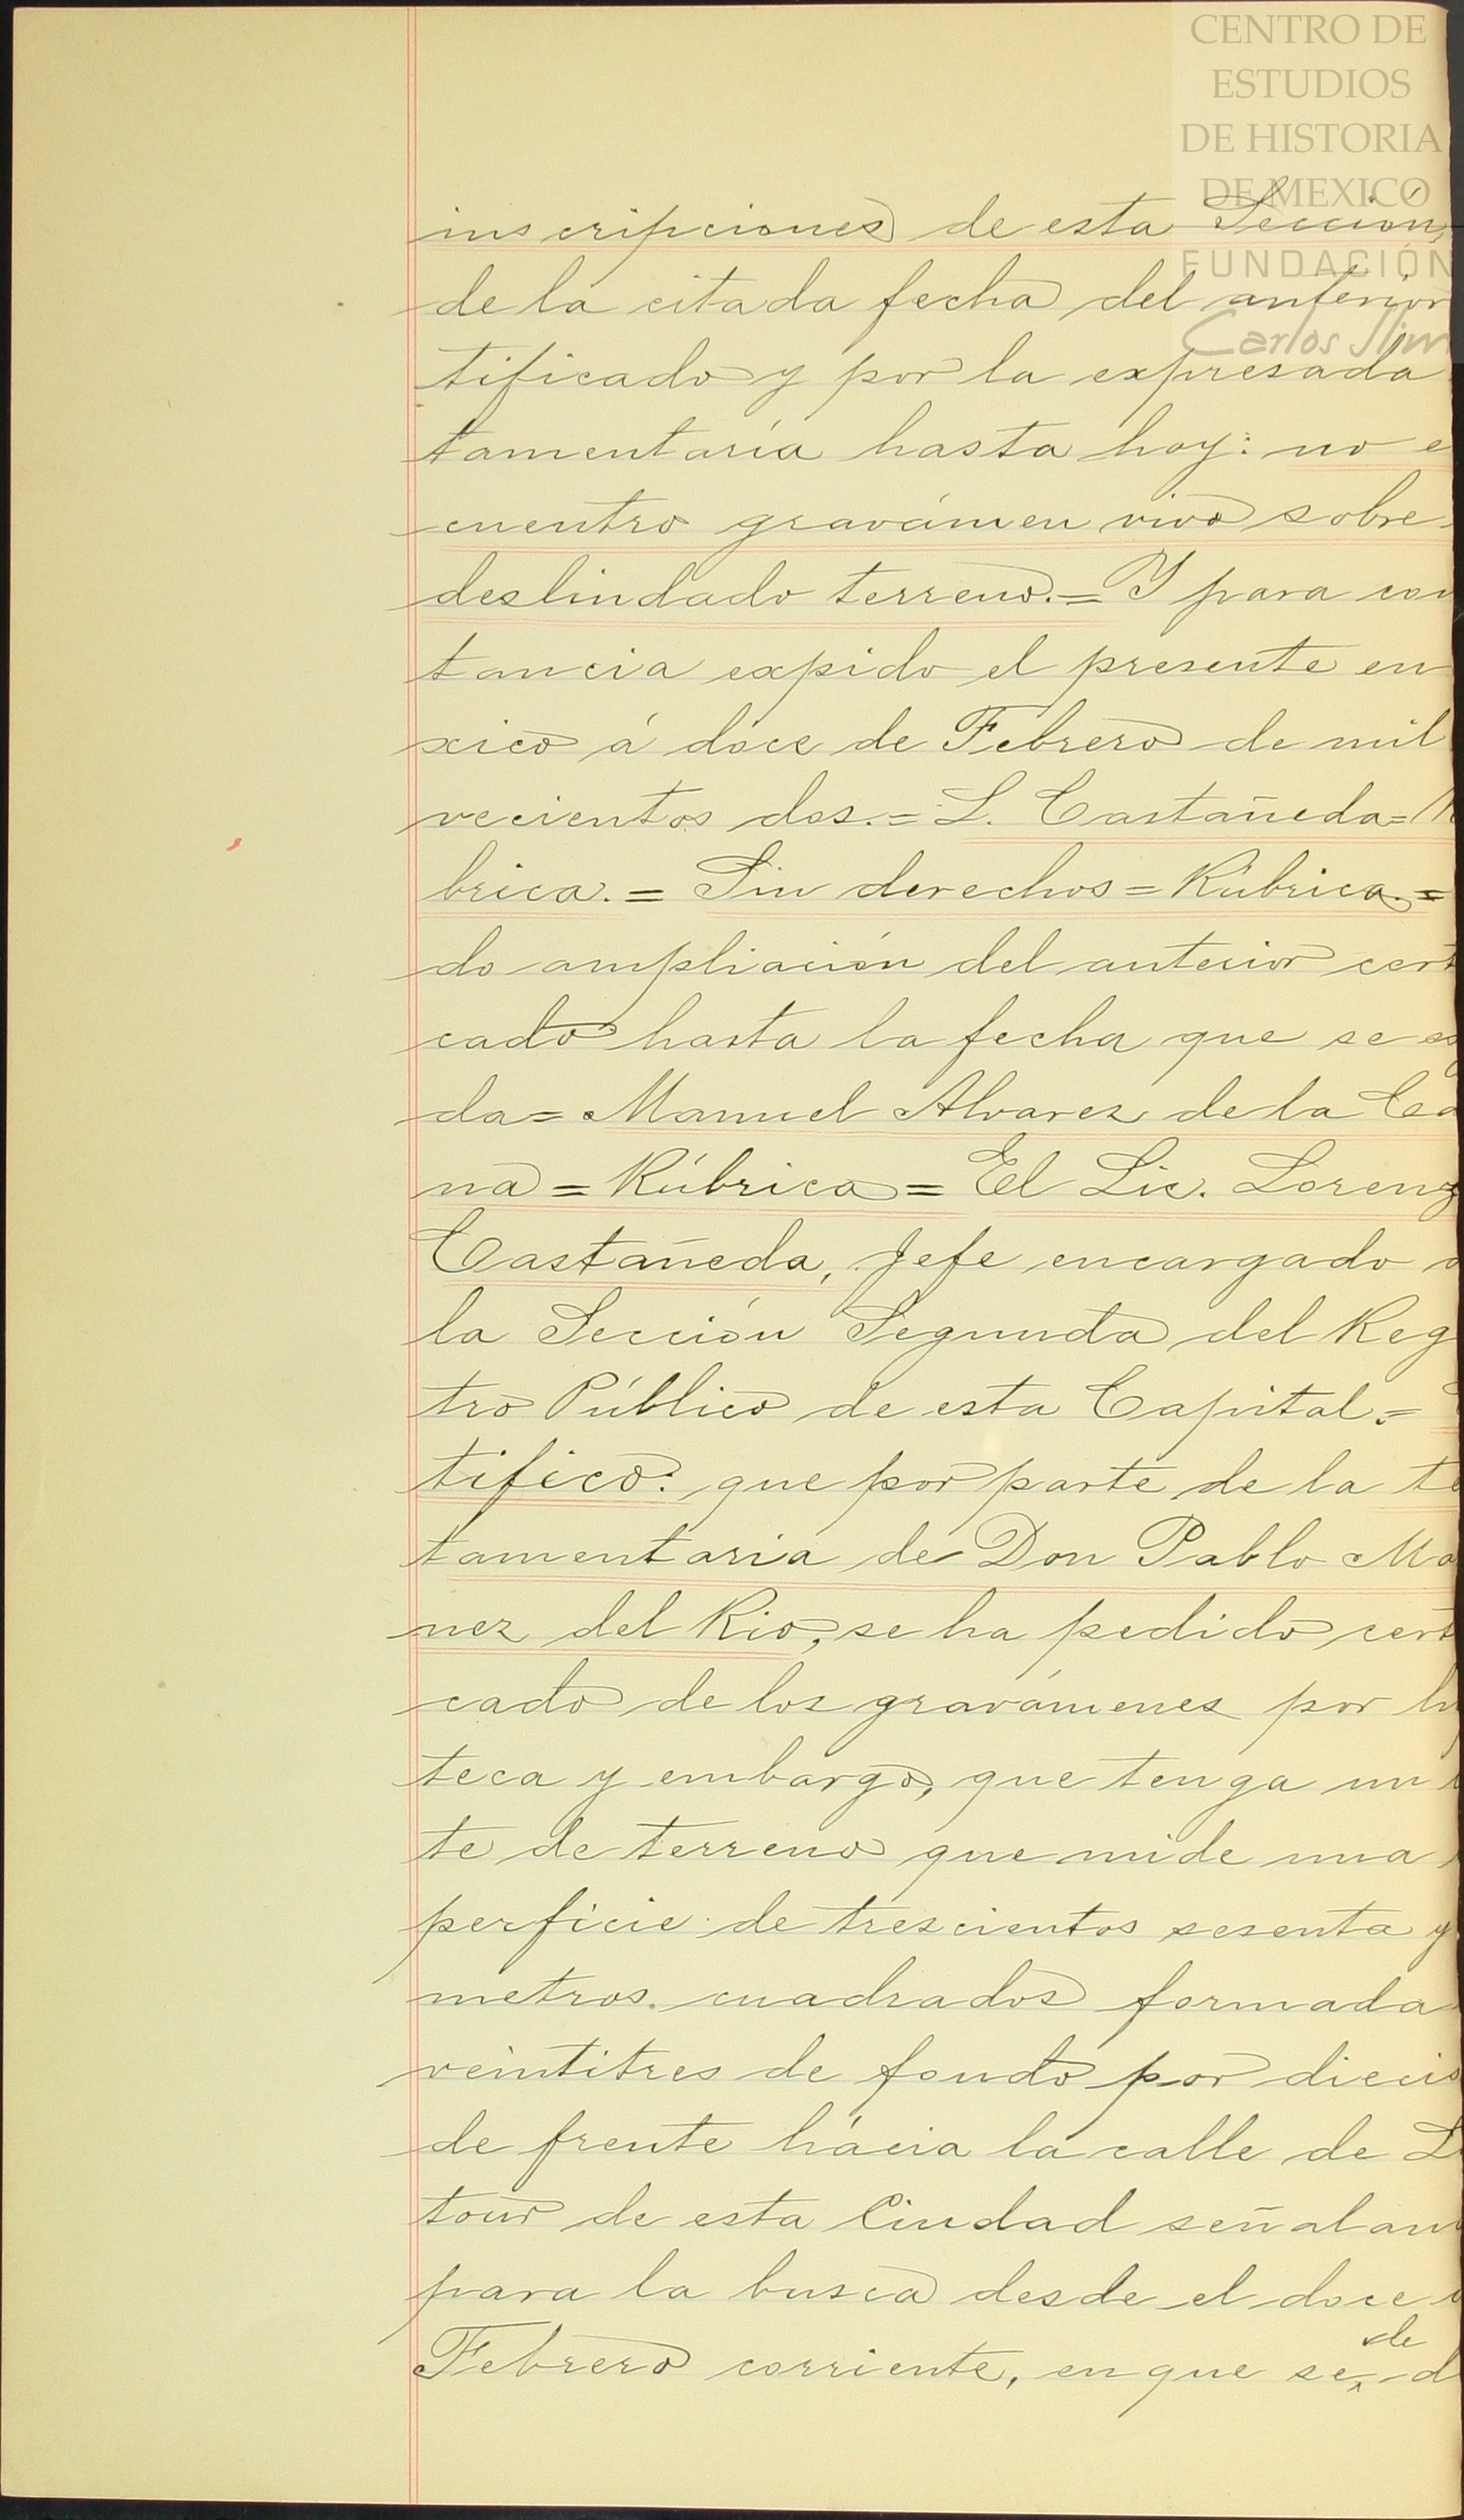 CENTRO DE
ESTUDIOS
DE HISTORIA
DE MEXICO
FUNDACIÓN
Carlos Slim
inscripciones de esta Sección,
de la citada fecha del anterior
tificado y por la expresada
tamentaría hasta hoy: no e
cuentro gravámen vivo sobre
deslindado terreno.= Y para con
tancia expido el presente en
xico á doce de Febrero de mil
vecientos dos.= L. Castañeda= R
brica.= Sin derechos = Rúbrica.=
do ampliación del anterior cert
cado hasta la fecha que se es
da= Manuel Alvarez de la Ca
na = Rúbrica = El Lic. Lorenz
Castañeda, Jefe encargado d
la Sección Segunda del Reg
tro Público de esta Capital.=
tifico: que por parte de la te
tamentaria de Don Pablo Ma
nez del Rio, se ha pedido cert
cado de los gravámenes por hi
teca y embargo, que tenga un
te de terreno que mide una
perficie de trescientos sesenta y
metros cuadrados formada
veintitres de fondo por diecis
de frente hácia la calle de L
tour de esta Ciudad señalan
para la busca desde el doce
Febrero corriente, en que se de d